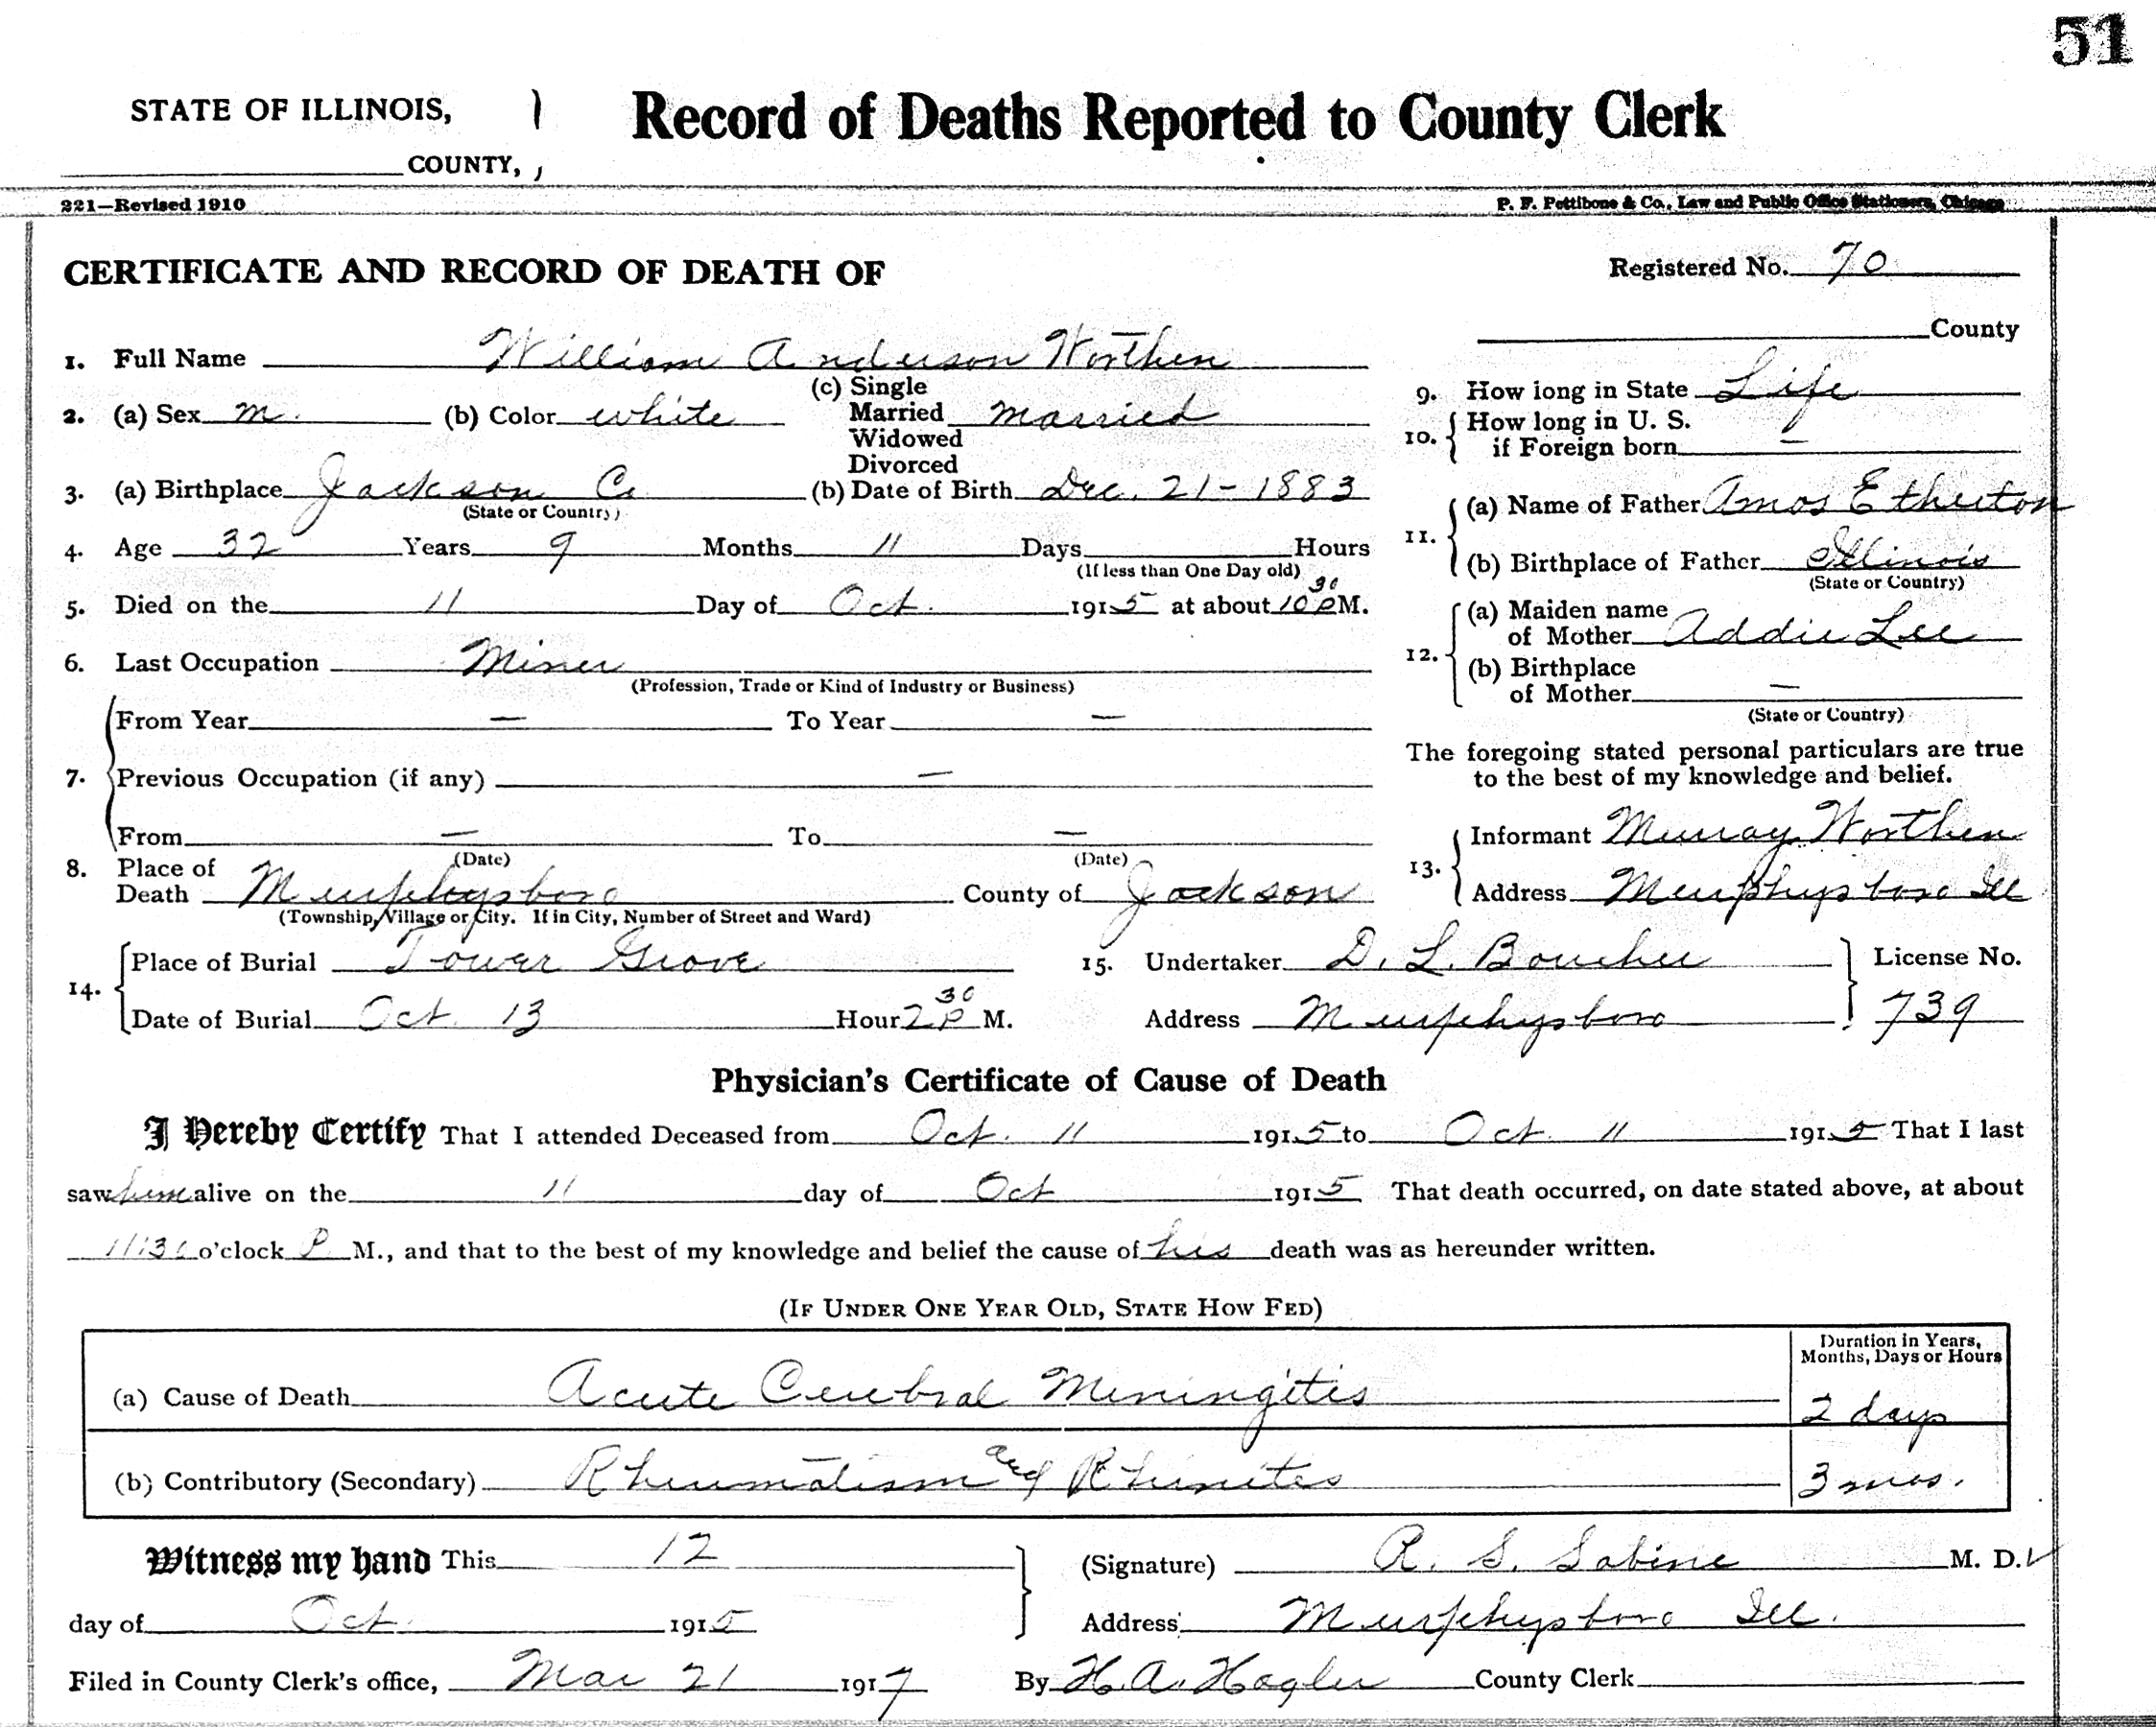 51
STATE OF ILLINOIS,
COUNTY,
Record of Deaths Reported to County Clerk
221—Revised 1910
P. F. Pettibone & Co., Law and Public Office Stationers, Chicago
CERTIFICATE AND RECORD OF DEATH OF
Registered No. 70
County
1. Full Name William Anderson Worthen
2. (a) Sex m. (b) Color white (c) Single Married Widowed Divorced married
3. (a) Birthplace Jackson Co (b) Date of Birth Dec. 21-1883
(State or Country)
4. Age 32 Years 9 Months 11 Days Hours
(If less than One Day old)
5. Died on the 11 Day of Oct. 1915 at about 10 30 P M.
6. Last Occupation Miner
(Profession, Trade or Kind of Industry or Business)
7. From Year — To Year —
Previous Occupation (if any) —
From — To —
(Date) (Date)
8. Place of Death Murphysboro County of Jackson
(Township, Village or City. If in City, Number of Street and Ward)
9. How long in State Life
10. How long in U. S. if Foreign born —
11. (a) Name of Father Amos Etherton
(b) Birthplace of Father Illinois
(State or Country)
12. (a) Maiden name of Mother Addie Lee
(b) Birthplace of Mother —
(State or Country)
The foregoing stated personal particulars are true
to the best of my knowledge and belief.
13. Informant Murray Worthen
Address Murphysboro Ill
14. Place of Burial Tower Grove
Date of Burial Oct. 13 Hour 2 30 P M.
15. Undertaker D. L. Boucher License No.
Address Murphysboro 739
Physician's Certificate of Cause of Death
I Hereby Certify That I attended Deceased from Oct. 11 1915 to Oct. 11 1915 That I last
saw him alive on the 11 day of Oct 1915 That death occurred, on date stated above, at about
11:30 o'clock P M., and that to the best of my knowledge and belief the cause of his death was as hereunder written.
(IF UNDER ONE YEAR OLD, STATE HOW FED)
Duration in Years,
Months, Days or Hours
(a) Cause of Death Acute Cerebral Meningitis 2 days
(b) Contributory (Secondary) Rheumatism and Rhinites 3 mos.
Witness my hand This 12
day of Oct. 1915
(Signature) R. S. Sabine M. D.
Address Murphysboro Ill.
Filed in County Clerk's office, Mar 21 1917 By H. A. Hagler County Clerk